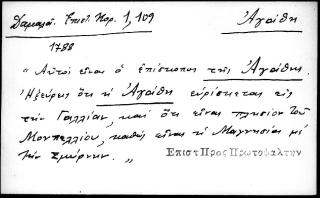 Δαμαλᾶ. Ἐπιστ. Κορ. 1, 109
Ἀγαίθη
1788
" Αὐτοὶ εἶναι ὁ ἐπίσκοπος τῆς Ἀγαίθης.
Ἠξεύρεις ὅτι ἡ Ἀγαίθη εὑρίσκεται εἰς
τὴν Γαλλίαν, καὶ ὅτι εἶναι πλησίον τοῦ
Μονπελλίου, καθὼς εἶναι ἡ Μαγνησία μὲ
τὴν Σμύρνην. "
Επιστ Προς Πρωτοψαλτην